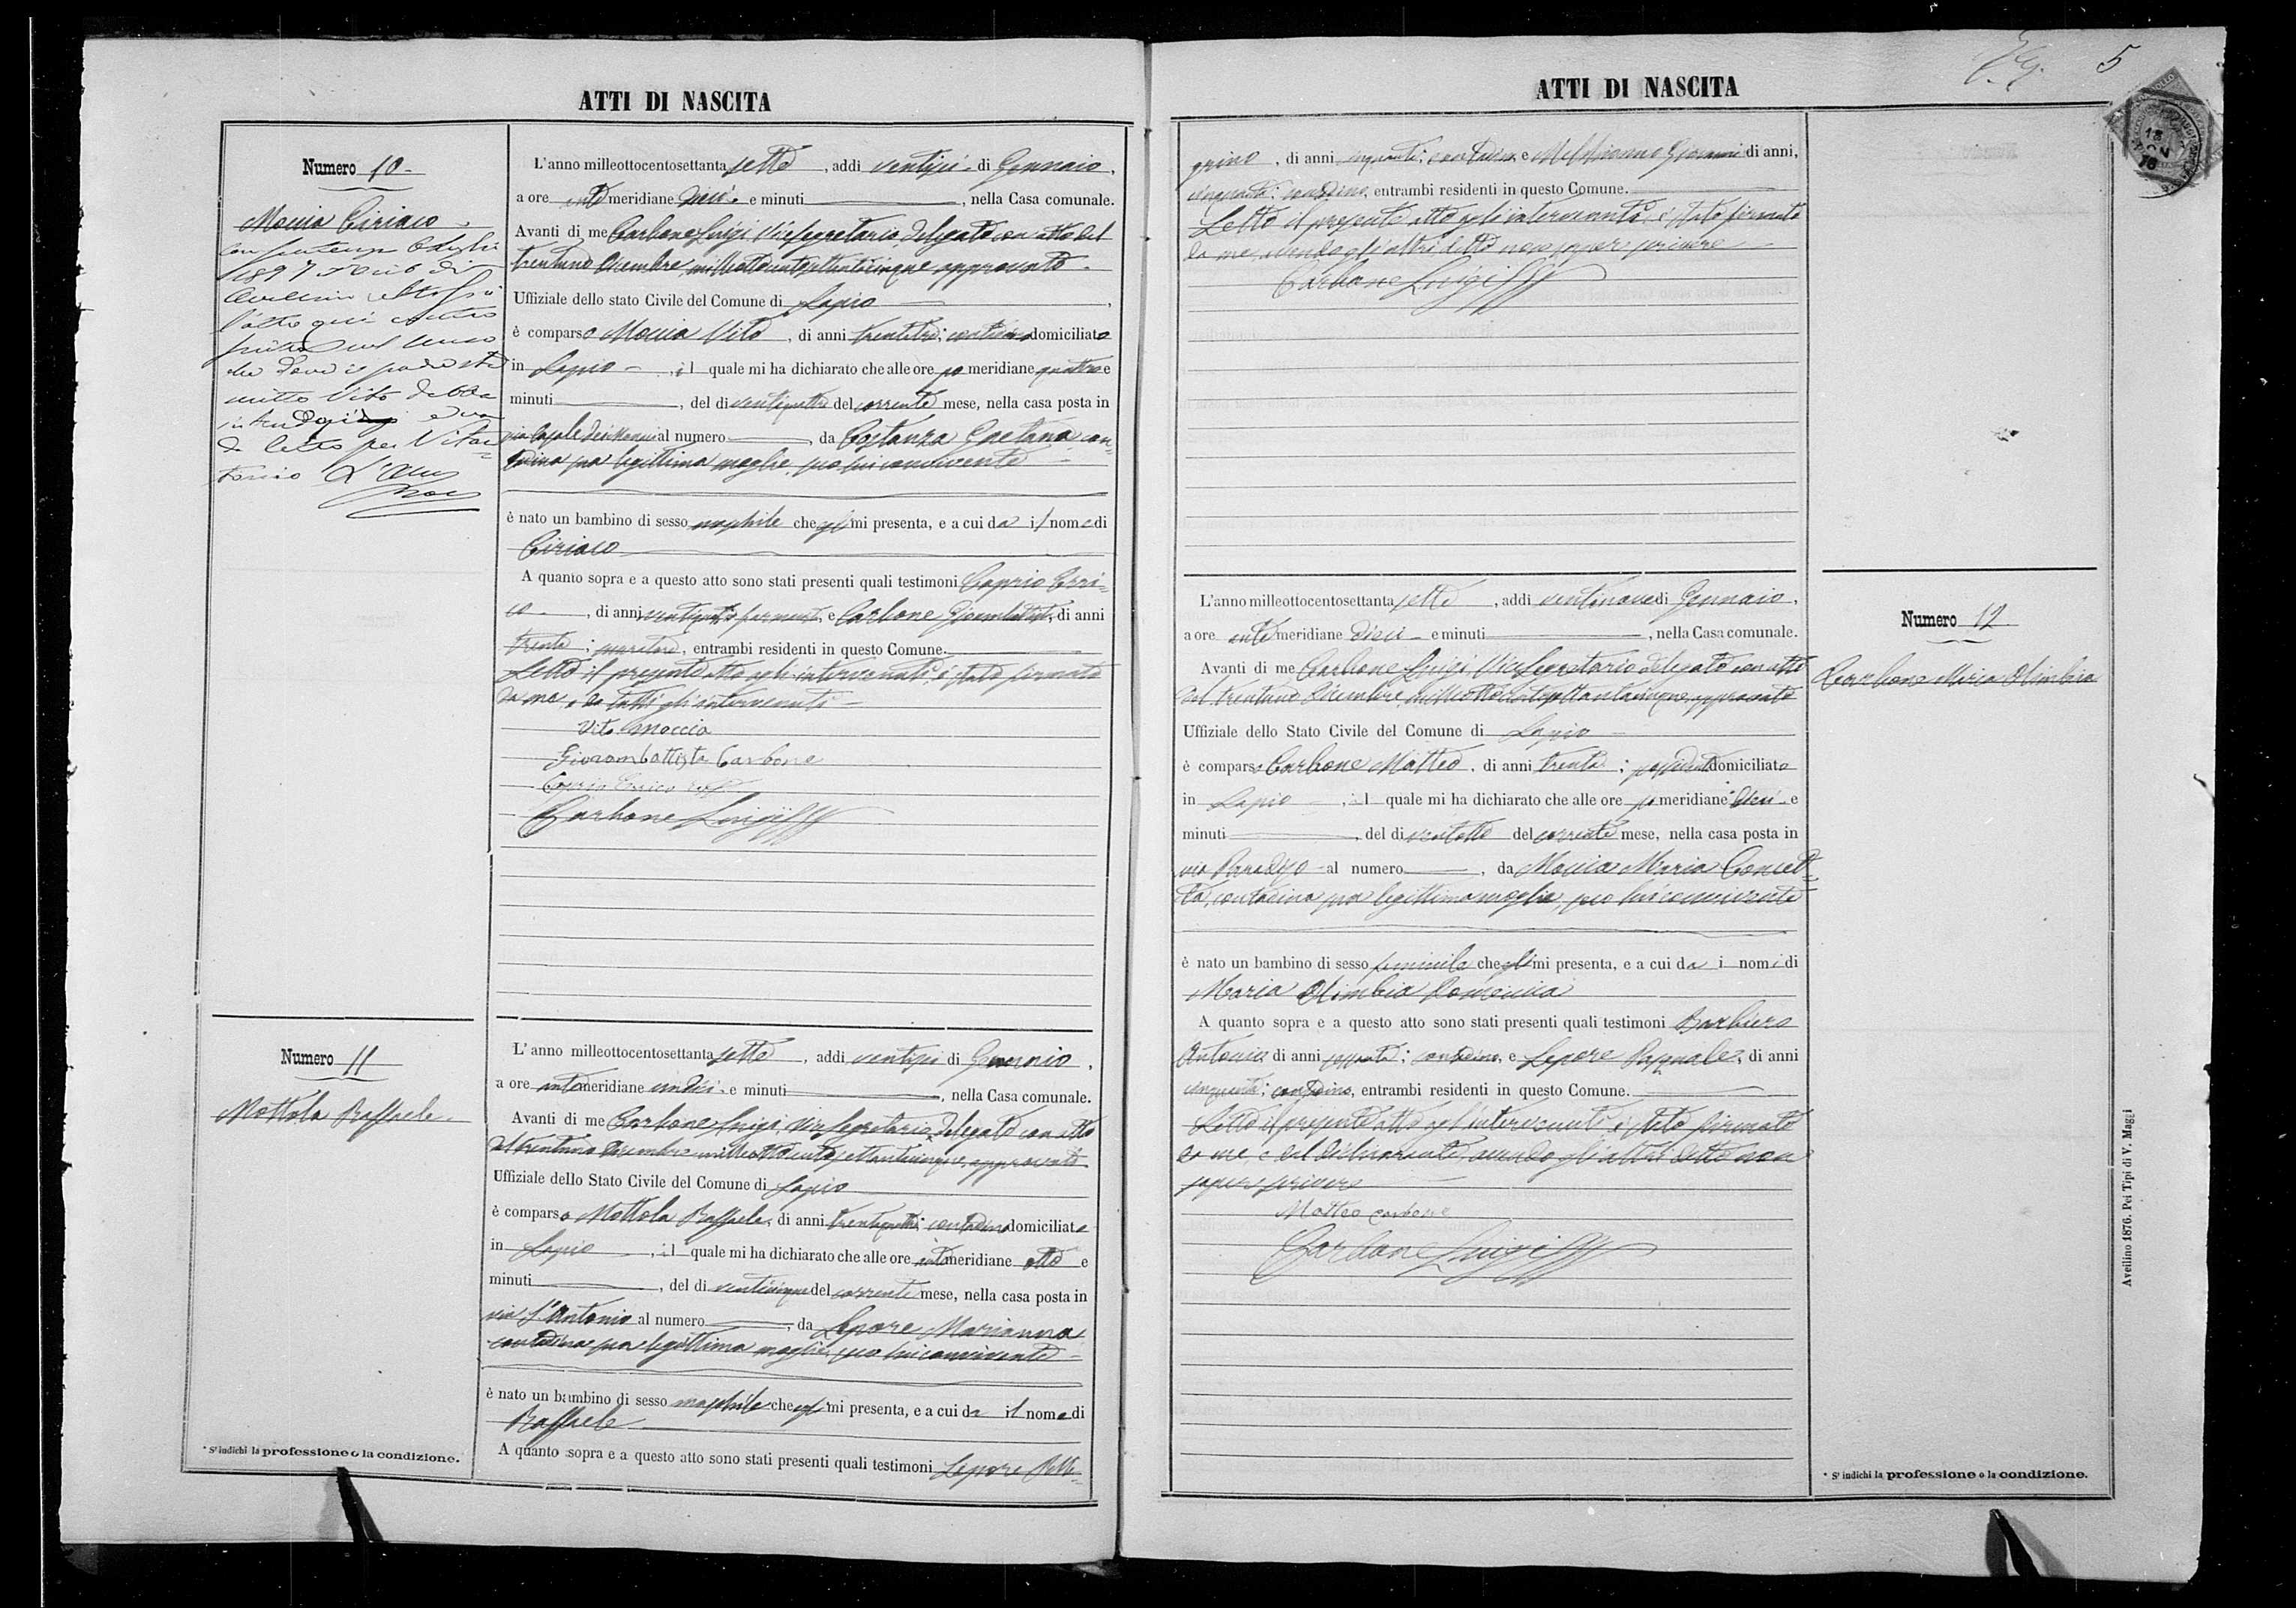 ATTI DI NASCITA
Numero 10
Moccia Ciriaco
1897
L'anno milleottocentosettanta sette, addì ventisei di Gennaio,
a ore ante meridiane dieci e minuti, nella Casa comunale.
Avanti di me Carbone Luigi Vicesegretario delegato con atto del
trentuno Dicembre milleottocentosettantacinque approvato
Uffiziale dello stato Civile del Comune di Lapio
è comparso Moccia Vito, di anni trentatre; contadino domiciliato
in Lapio, il quale mi ha dichiarato che alle ore po meridiane quattro e
minuti, del dì ventiquattro del corrente mese, nella casa posta in
via Casale dei Moccia al numero, da Costanza Gaetana con=
tadina sua legittima moglie, seco lui convivente
è nato un bambino di sesso maschile che egli mi presenta, e a cui da il nome di
Ciriaco
A quanto sopra e a questo atto sono stati presenti quali testimoni Caprio Erri=
co, di anni, e Carbone Giovambattista, di anni
trenta;, entrambi residenti in questo Comune.
Letto il presente atto agli intervenuti, è stato firmato
da me, e da tutti gli intervenuti
Vito Moccia
Giovambattista Carbone
Caprio Errico
Carbone Luigi
Numero 11
Mottola Raffaele
L'anno milleottocentosettanta sette, addì ventisei di Gennaio,
a ore antemeridiane undici e minuti, nella Casa comunale.
Avanti di me Carbone Luigi, Vicesegretario delegato con atto
del trentuno Dicembre milleottocentosettantacinque, approvato
Uffiziale dello Stato Civile del Comune di Lapio
è comparso Mottola Raffaele, di anni trentaquattro; contadino domiciliato
in Lapio, il quale mi ha dichiarato che alle ore antemeridiane otto e
minuti, del dì venticinque del corrente mese, nella casa posta in
via S. Antonio al numero, da Lepore Marianna
contadina sua legittima moglie, seco lui convivente
è nato un bambino di sesso maschile che egli mi presenta, e a cui da il nome di
Raffaele
A quanto sopra e a questo atto sono stati presenti quali testimoni Lepore Pelle=
* S'indichi la professione o la condizione.
5
ATTI DI NASCITA
grino, di anni; contadino, e Melchionno Giovanni di anni,
cinquanta; contadino, entrambi residenti in questo Comune.
Letto il presente atto agli intervenuti, è stato firmato
da me, avendo gli altri detto non sapere scrivere
Carbone Luigi
Numero 12
Carbone Maria Olimbia
L'anno milleottocentosettanta sette, addì ventinove di Gennaio,
a ore antemeridiane dieci e minuti, nella Casa comunale.
Avanti di me Carbone Luigi, Vicesegretario delegato con atto
del trentuno Dicembre, milleottocentosettantacinque, approvato
Uffiziale dello Stato Civile del Comune di Lapio
è comparso Carbone Matteo, di anni trenta; possidente domiciliato
in Lapio, il quale mi ha dichiarato che alle ore po meridiane dieci e
minuti, del dì ventotto del corrente mese, nella casa posta in
via Paradiso al numero, da Moccia Maria Concet=
ta, contadina sua legittima moglie, seco lui convivente
è nato un bambino di sesso feminile che egli mi presenta, e a cui da i nomi di
Maria Olimbia Domenica
A quanto sopra e a questo atto sono stati presenti quali testimoni Barbiero
Antonio di anni sessanta; contadino, e Lepore Pasquale, di anni
cinquanta; contadino, entrambi residenti in questo Comune.
Letto il presente atto agl'intervenuti è stato firmato
da me, e dal dichiarante, avendo gli altri detto non
sapere scrivere
Matteo Carbone
Carbone Luigi
* S'indichi la professione o la condizione.
Avellino 1876. Pei Tipi di V. Maggi